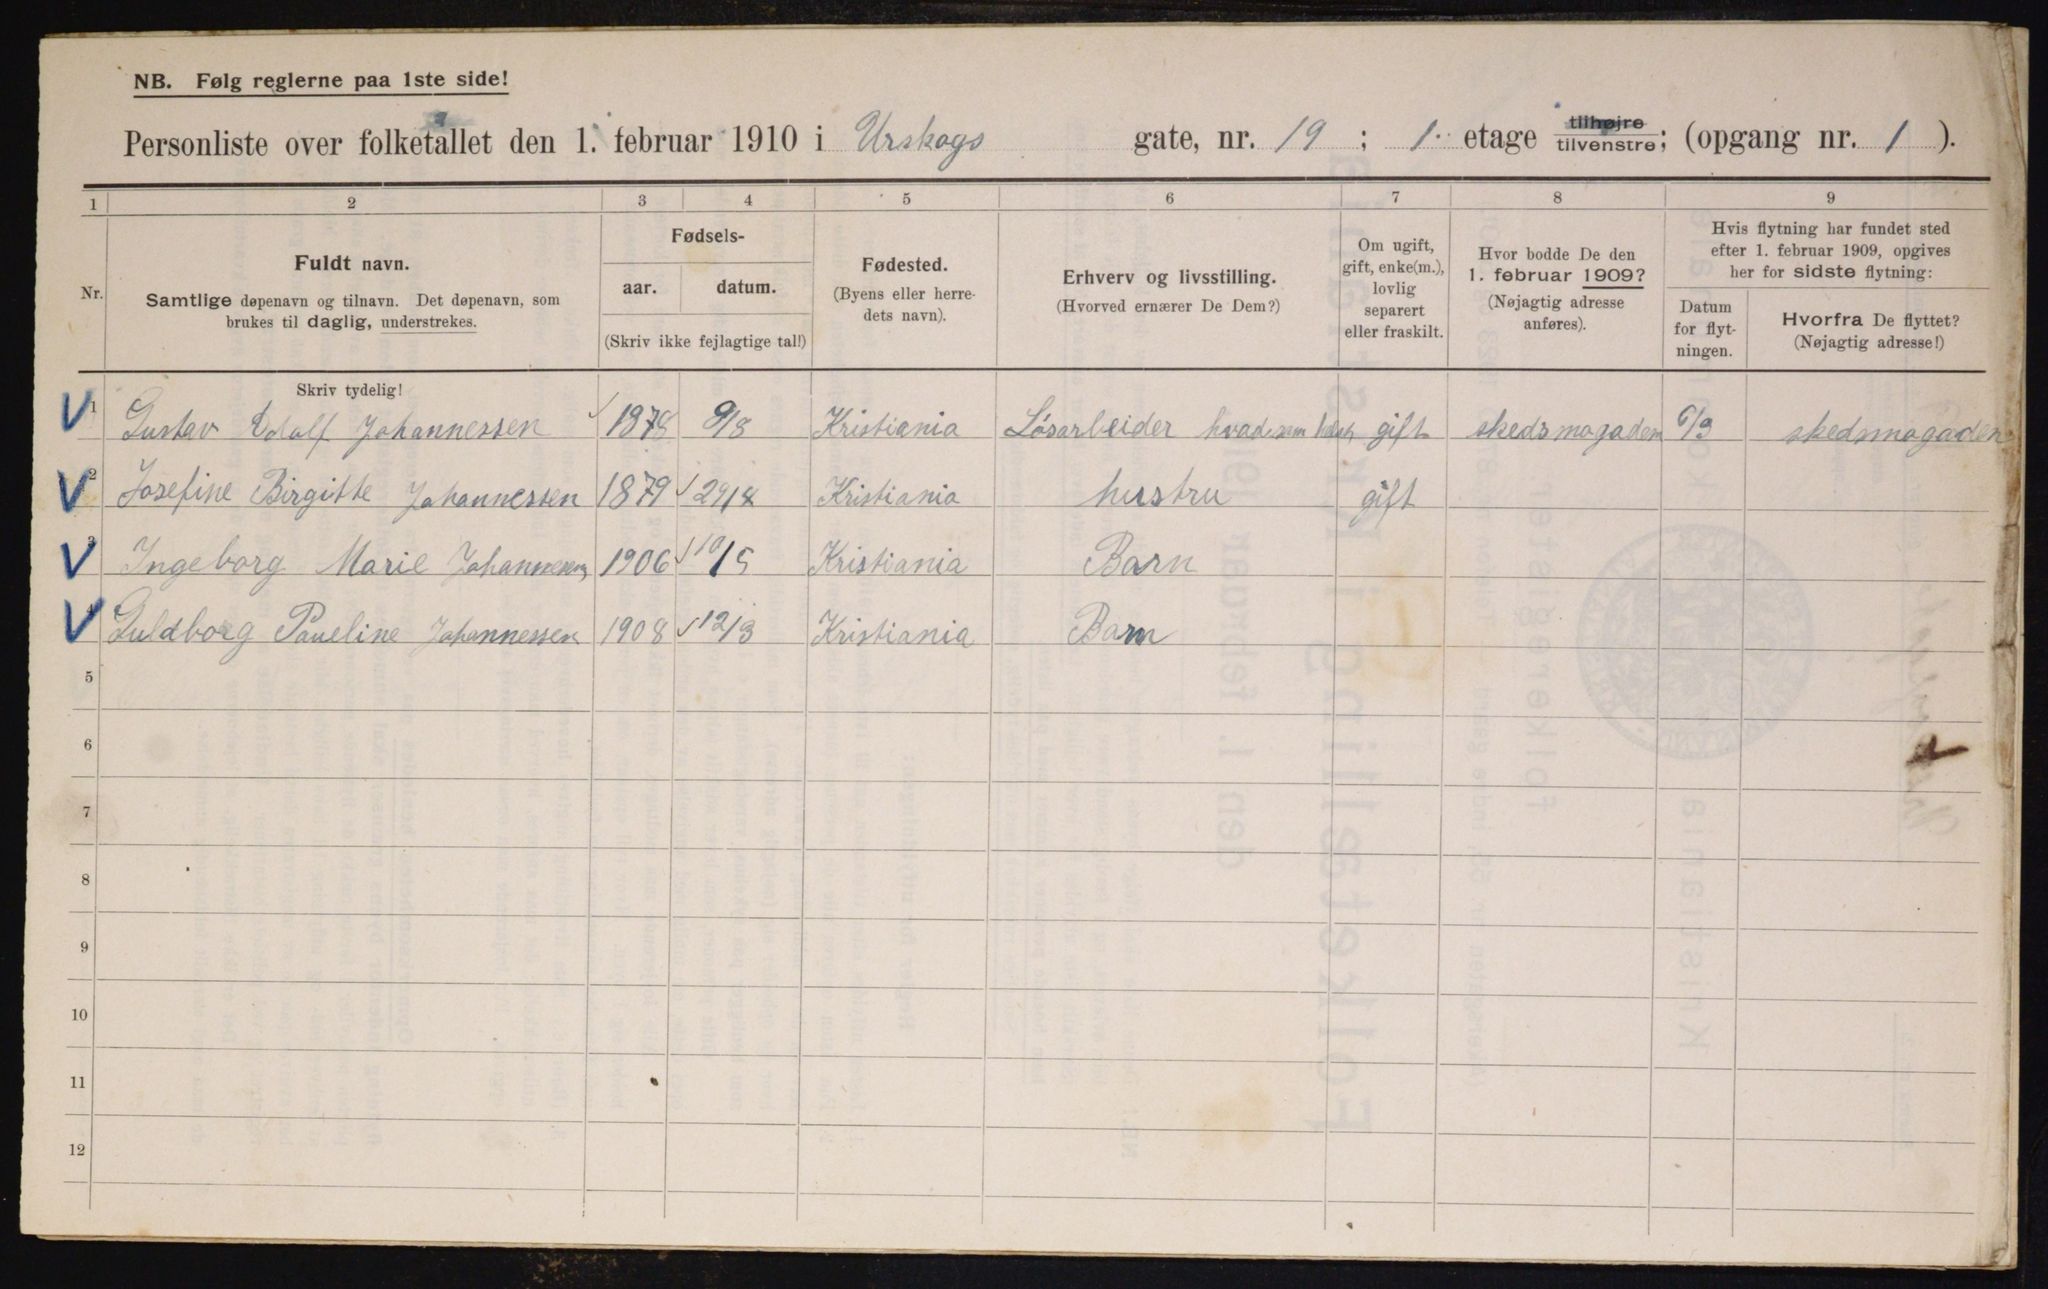 NB. Følg reglerne paa 1ste side!
Personliste over folketallet den 1. februar 1910 i Urskogs gate, nr. 19 ; 1. etage tilhøjre tilvenstre; (opgang nr. 1 ).
1 2 3 4 5 6 7 8 9
Nr.
Fuldt navn.
Samtlige døpenavn og tilnavn. Det døpenavn, som
brukes til daglig, understrekes.
Fødsels-
aar. datum.
(Skriv ikke fejlagtige tal!)
Fødested.
(Byens eller herre-
dets navn).
Erhverv og livsstilling.
(Hvorved ernærer De Dem?)
Om ugift,
gift, enke(m.),
lovlig
separert
eller fraskilt.
Hvor bodde De den
1. februar 1909?
(Nøjagtig adresse
anføres).
Hvis flytning har fundet sted
efter 1. februar 1909, opgives
her for sidste flytning:
Datum
for flyt-
ningen.
Hvorfra De flyttet?
(Nøjagtig adresse!)
Skriv tydelig!
1 Gustav Adolf Johannessen 1878 9/8 Kristiania Løsarbeider hvad som helst gift skedsmogaden 6/3 skedsmogaden
2 Josefine Birgitte Johannessen 1879 29/8 Kristiania hustru gift
3 Ingeborg Marie Johannessen 1906 10/5 Kristiania Barn
4 Guldborg Pauline Johannessen 1908 12/3 Kristiania Barn
5
6
7
8
9
10
11
12